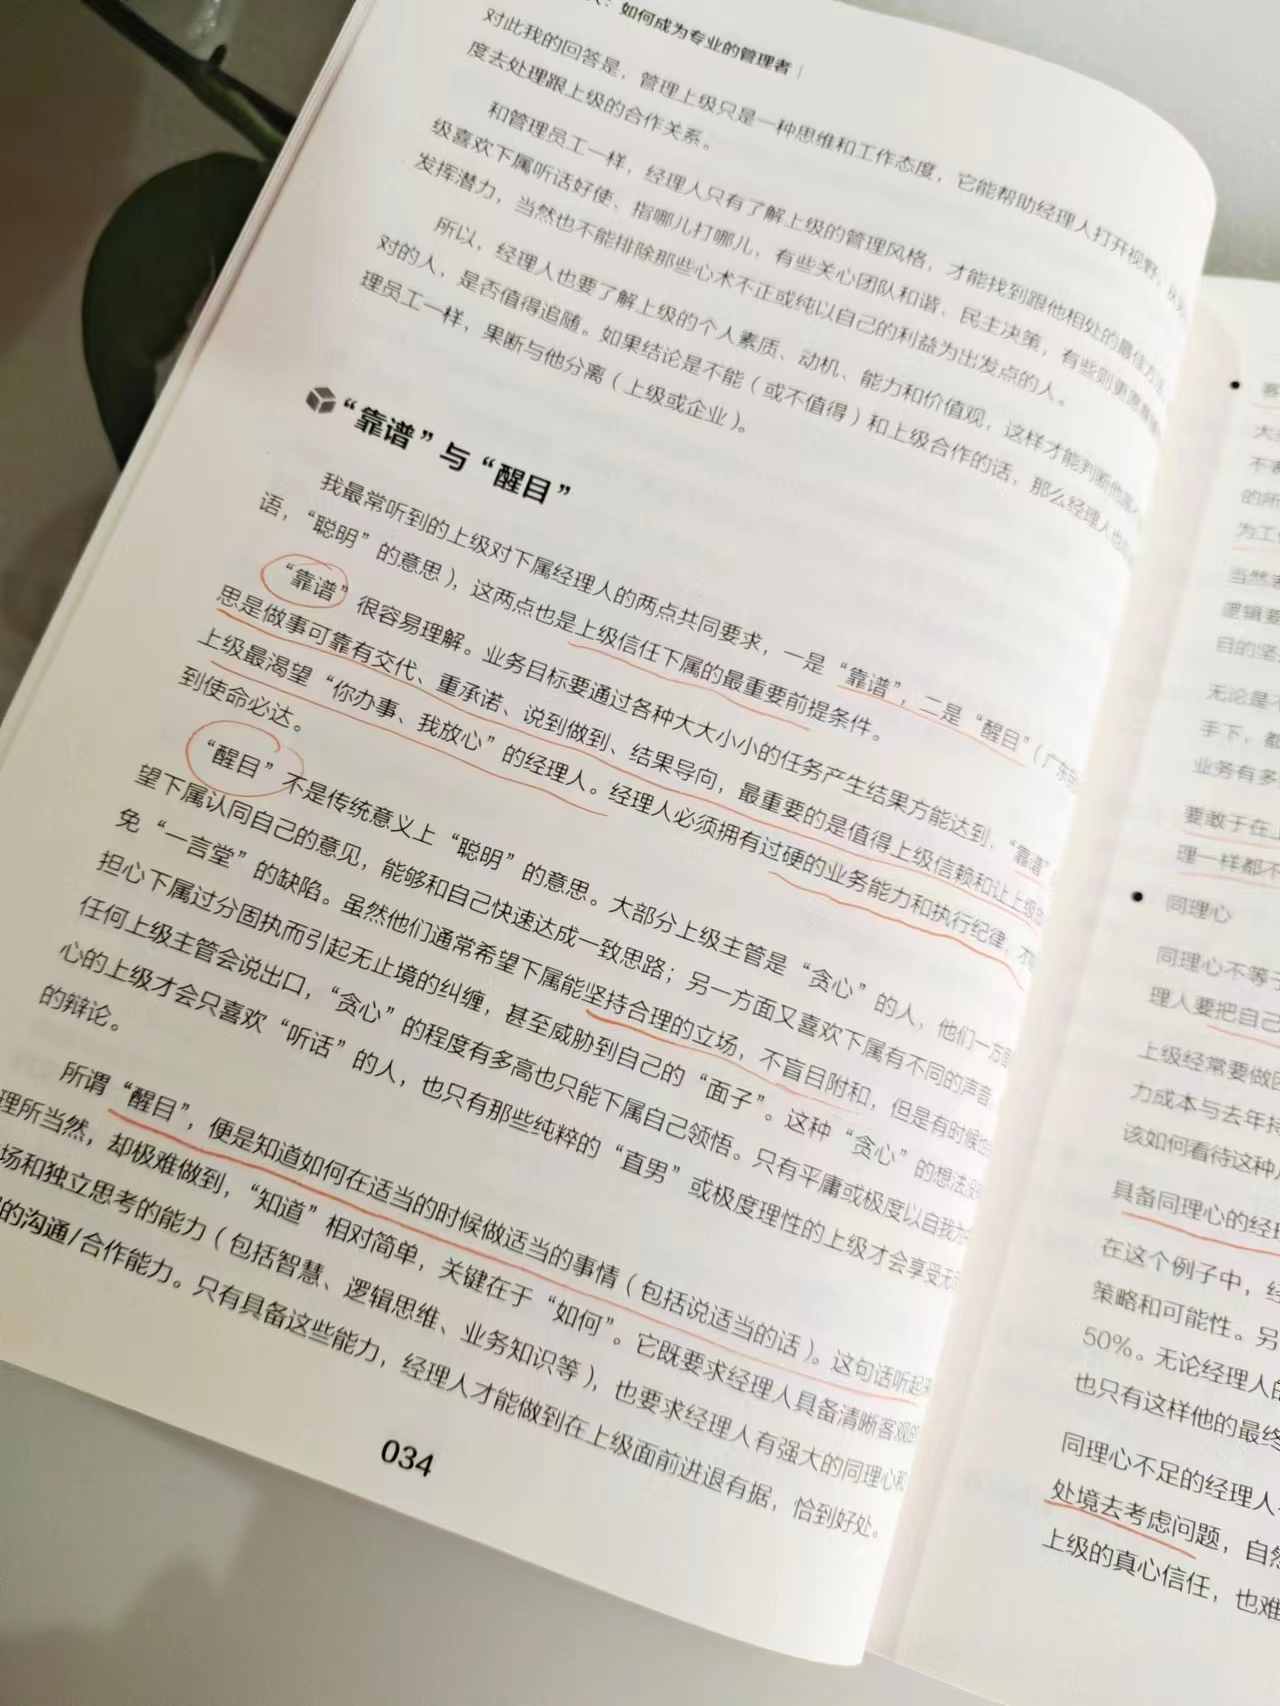 ：如何成为专业的管理者
对此我的回答是，管理上级只是一种思维和工作态度，它能帮助经理人打开视野，
度去处理跟上级的合作关系。
和管理员工一样，经理人只有了解上级的管理风格，才能找到跟他相处的最佳方
级喜欢下属听话好使、指哪儿打哪儿，有些关心团队和谐、民主决策，有些则更
发挥潜力，当然也不能排除那些心术不正或纯以自己的利益为出发点的人。
所以，经理人也要了解上级的个人素质、动机、能力和价值观，这样才能判断他
对的人，是否值得追随。如果结论是不能（或不值得）和上级合作的话，那么经理人也
理员工一样，果断与他分离（上级或企业）。
“靠谱”与“醒目”
我最常听到的上级对下属经理人的两点共同要求，一是“靠谱”，二是“醒目”（广东
语，“聪明”的意思），这两点也是上级信任下属的最重要前提条件。
“靠谱”很容易理解。业务目标要通过各种大大小小的任务产生结果方能达到，“靠谱”
思是做事可靠有交代、重承诺、说到做到、结果导向，最重要的是值得上级信赖和让上级
上级最渴望“你办事、我放心”的经理人。经理人必须拥有过硬的业务能力和执行纪律，才
到使命必达。
“醒目”不是传统意义上“聪明”的意思。大部分上级主管是“贪心”的人，他们一方面
望下属认同自己的意见，能够和自己快速达成一致思路；另一方面又喜欢下属有不同的声音，
免“一言堂”的缺陷。虽然他们通常希望下属能坚持合理的立场，不盲目附和，但是有时候
担心下属过分固执而引起无止境的纠缠，甚至威胁到自己的“面子”。这种“贪心”的想法没
任何上级主管会说出口，“贪心”的程度有多高也只能下属自己领悟。只有平庸或极度以自我为
心的上级才会只喜欢“听话”的人，也只有那些纯粹的“直男”或极度理性的上级才会享受无
的辩论。
所谓“醒目”，便是知道如何在适当的时候做适当的事情（包括说适当的话）。这句话听起
理所当然，却极难做到，“知道”相对简单，关键在于“如何”。它既要求经理人具备清晰客观的
场和独立思考的能力（包括智慧、逻辑思维、业务知识等），也要求经理人有强大的同理心和
的沟通/合作能力。只有具备这些能力，经理人才能做到在上级面前进退有据，恰到好处。
034
大
不
的所
为工
当然
逻辑要
目的坚
无论是
手下，都
业务有多
要敢于在上
理一样都不
● 同理心
同理心不等于
理人要把自己
上级经常要做
力成本与去年持
该如何看待这种
具备同理心的经理
在这个例子中，经
策略和可能性。另
50%。无论经理人的
也只有这样他的最终
同理心不足的经理人
处境去考虑问题，自然
上级的真心信任，也难